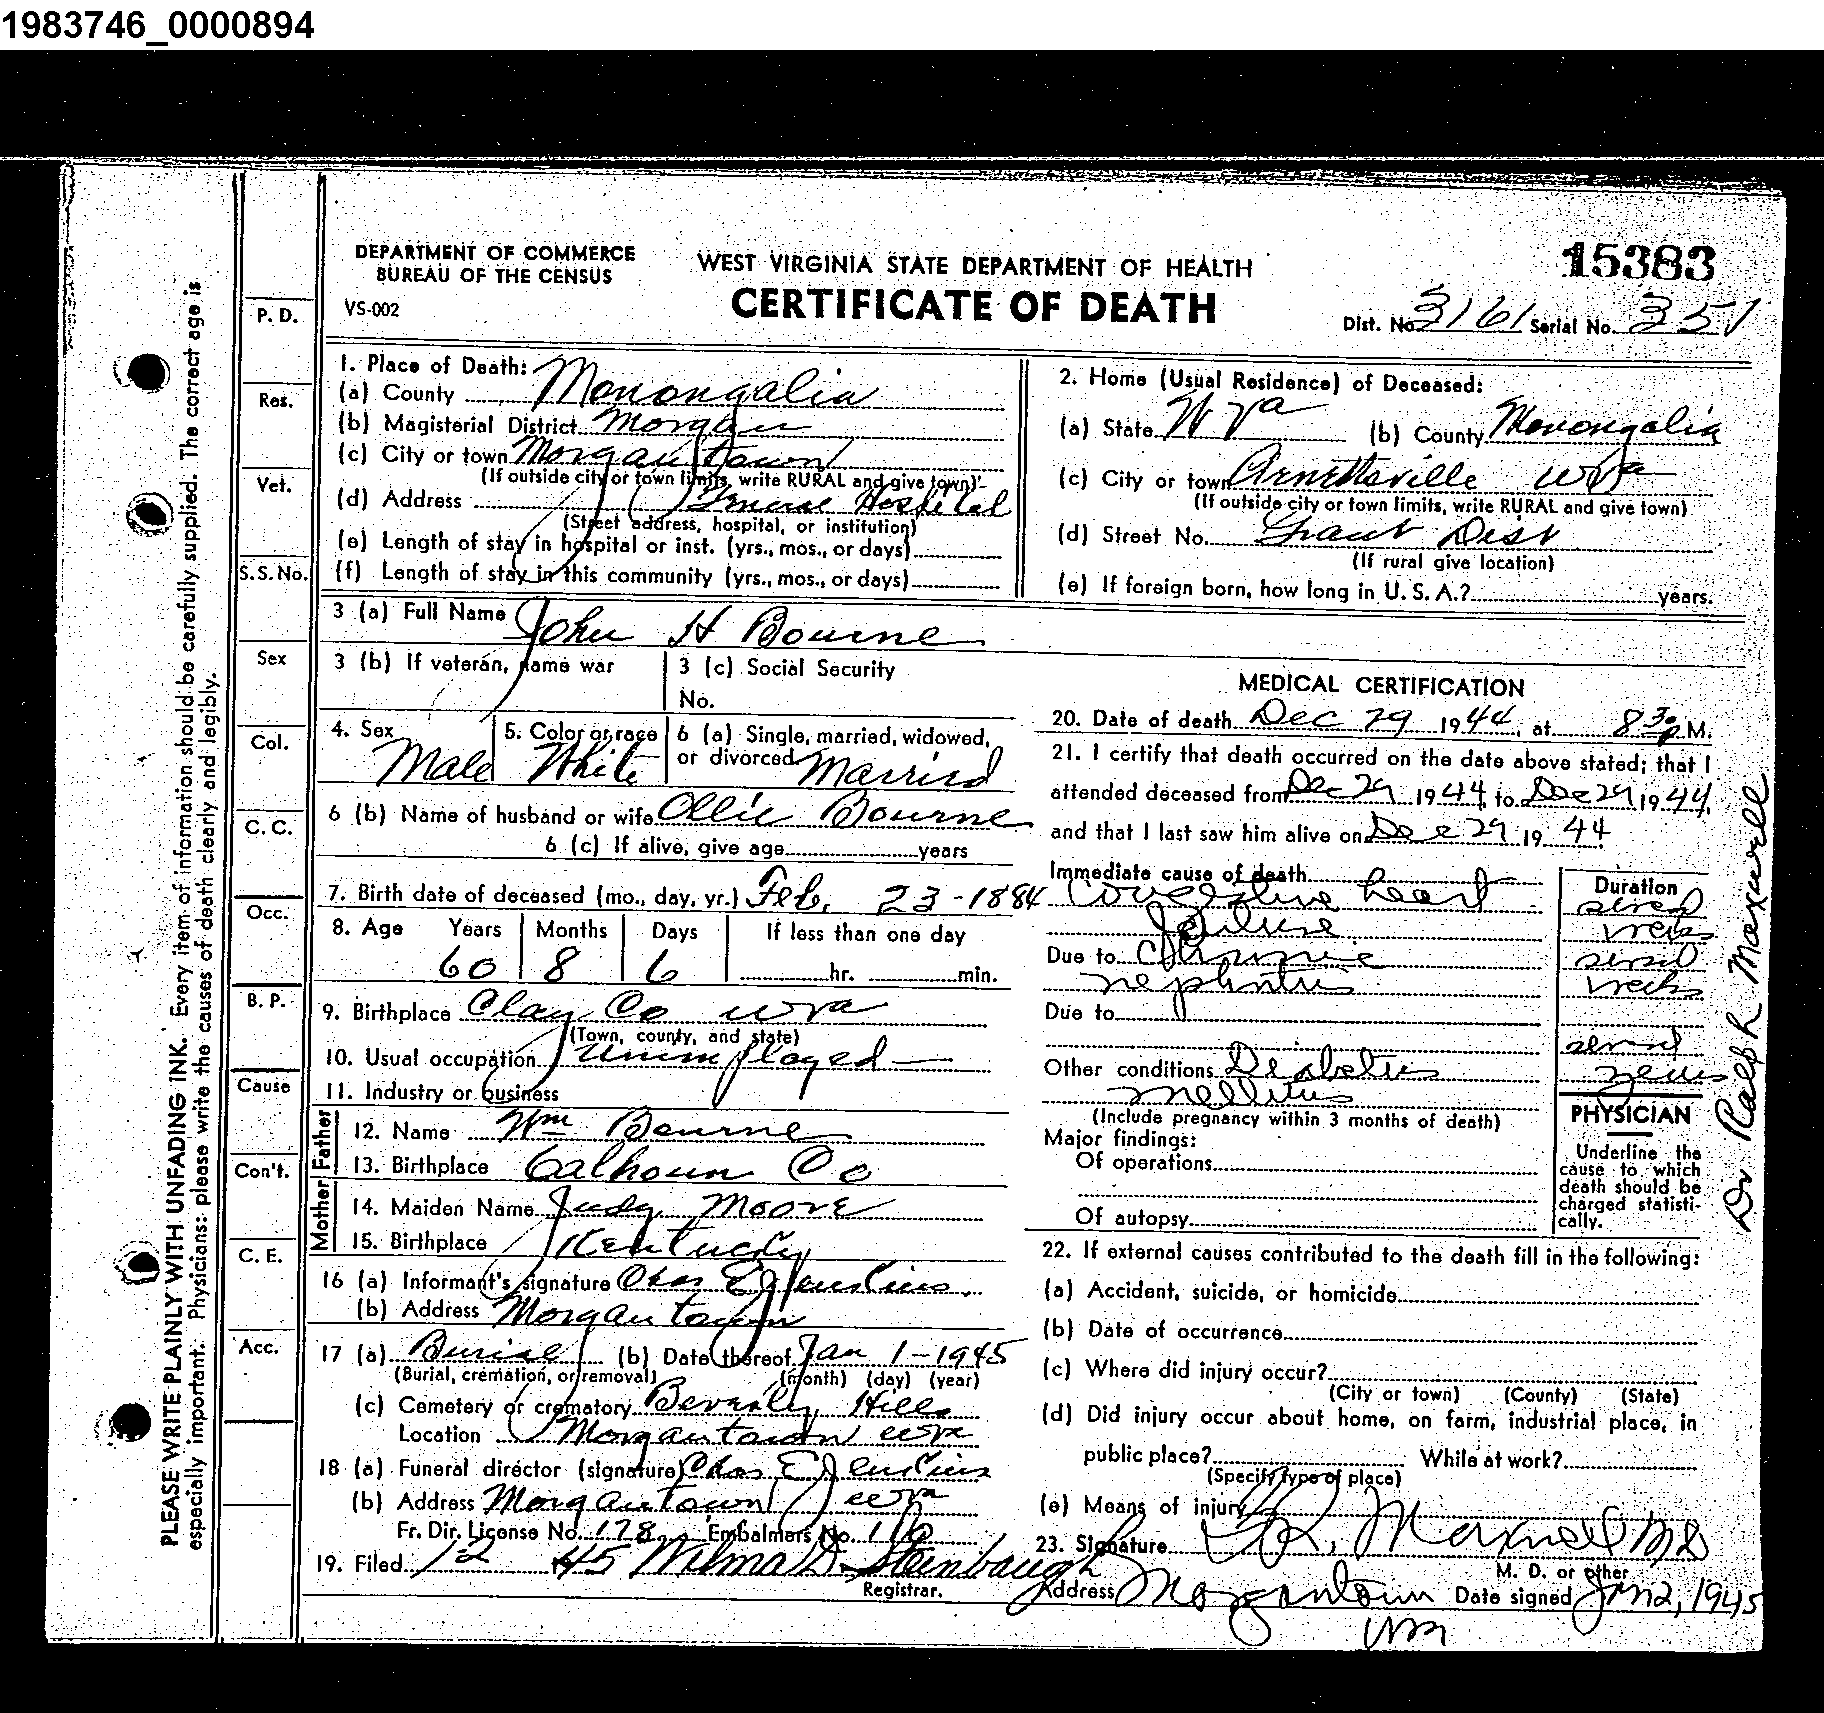 1983746_0000894
DEPARTMENT OF COMMERCE
BUREAU OF THE CENSUS
VS-002
WEST VIRGINIA STATE DEPARTMENT OF HEALTH
CERTIFICATE OF DEATH
15383
Dist. No. 3161 Serial No. 351
PLEASE WRITE PLAINLY WITH UNFADING INK. Every item of information should be carefully supplied. The correct age is
especially important. Physicians: please write the causes of death clearly and legibly.
P. D.
Res.
Vet.
S. S. No.
Sex
Col.
C. C.
Occ.
B. P.
Cause
Con't.
C. E.
Acc.
1. Place of Death:
(a) County Monongalia
(b) Magisterial District Morgan
(c) City or town Morgantown
(If outside city or town limits, write RURAL and give town)
(d) Address General Hospital
(Street address, hospital, or institution)
(e) Length of stay in hospital or inst. (yrs., mos., or days)
(f) Length of stay in this community (yrs., mos., or days)
2. Home (Usual Residence) of Deceased:
(a) State W Va (b) County Monongalia
(c) City or town Arnettsville W Va
(If outside city or town limits, write RURAL and give town)
(d) Street No. Grant Dist
(If rural give location)
(e) If foreign born, how long in U. S. A.? years.
3 (a) Full Name John H Bourne
3 (b) If veteran, name war
3 (c) Social Security
No.
4. Sex Male
5. Color or race White
6 (a) Single, married, widowed,
or divorced Married
6 (b) Name of husband or wife Ollie Bourne
6 (c) If alive, give age years
7. Birth date of deceased (mo., day, yr.) Feb. 23-1884
8. Age Years Months Days If less than one day
60 8 6 hr. min.
9. Birthplace Clay Co W Va
(Town, county, and state)
10. Usual occupation Unemployed
11. Industry or business
Father
12. Name Wm Bourne
13. Birthplace Calhoun Co
Mother
14. Maiden Name Judy Moore
15. Birthplace Kentucky
16 (a) Informant's signature Chas E Jenkins
(b) Address Morgantown
17 (a) Burial (b) Date thereof Jan 1-1945
(Burial, cremation, or removal) (month) (day) (year)
(c) Cemetery or crematory Beverly Hills
Location Morgantown W Va
18 (a) Funeral director (signature) Chas E Jenkins
(b) Address Morgantown W Va
Fr. Dir. License No. 178 Embalmers No.
19. Filed 1 2 45 Wilma D. Steinbaugh
Registrar.
MEDICAL CERTIFICATION
20. Date of death Dec 29 1944, at 8 30 P M.
21. I certify that death occurred on the date above stated; that I
attended deceased from Dec 29 1944, to Dec 29 1944,
and that I last saw him alive on Dec 29 19 44
Immediate cause of death
Congestive heart
failure
Due to Chronic
nephritis
Due to
Other conditions Diabetes
mellitus
(Include pregnancy within 3 months of death)
Major findings:
Of operations
Of autopsy
Duration
several
weeks
several
weeks
several
years
PHYSICIAN
Underline the
cause to which
death should be
charged statisti-
cally.
22. If external causes contributed to the death fill in the following:
(a) Accident, suicide, or homicide
(b) Date of occurrence
(c) Where did injury occur?
(City or town) (County) (State)
(d) Did injury occur about home, on farm, industrial place, in
public place? While at work?
(Specify type of place)
(e) Means of injury
23. Signature R. Maxwell MD
M. D. or other
Address Morgantown Date signed Jan 2, 1945
W Va
Dr Ralph Maxwell